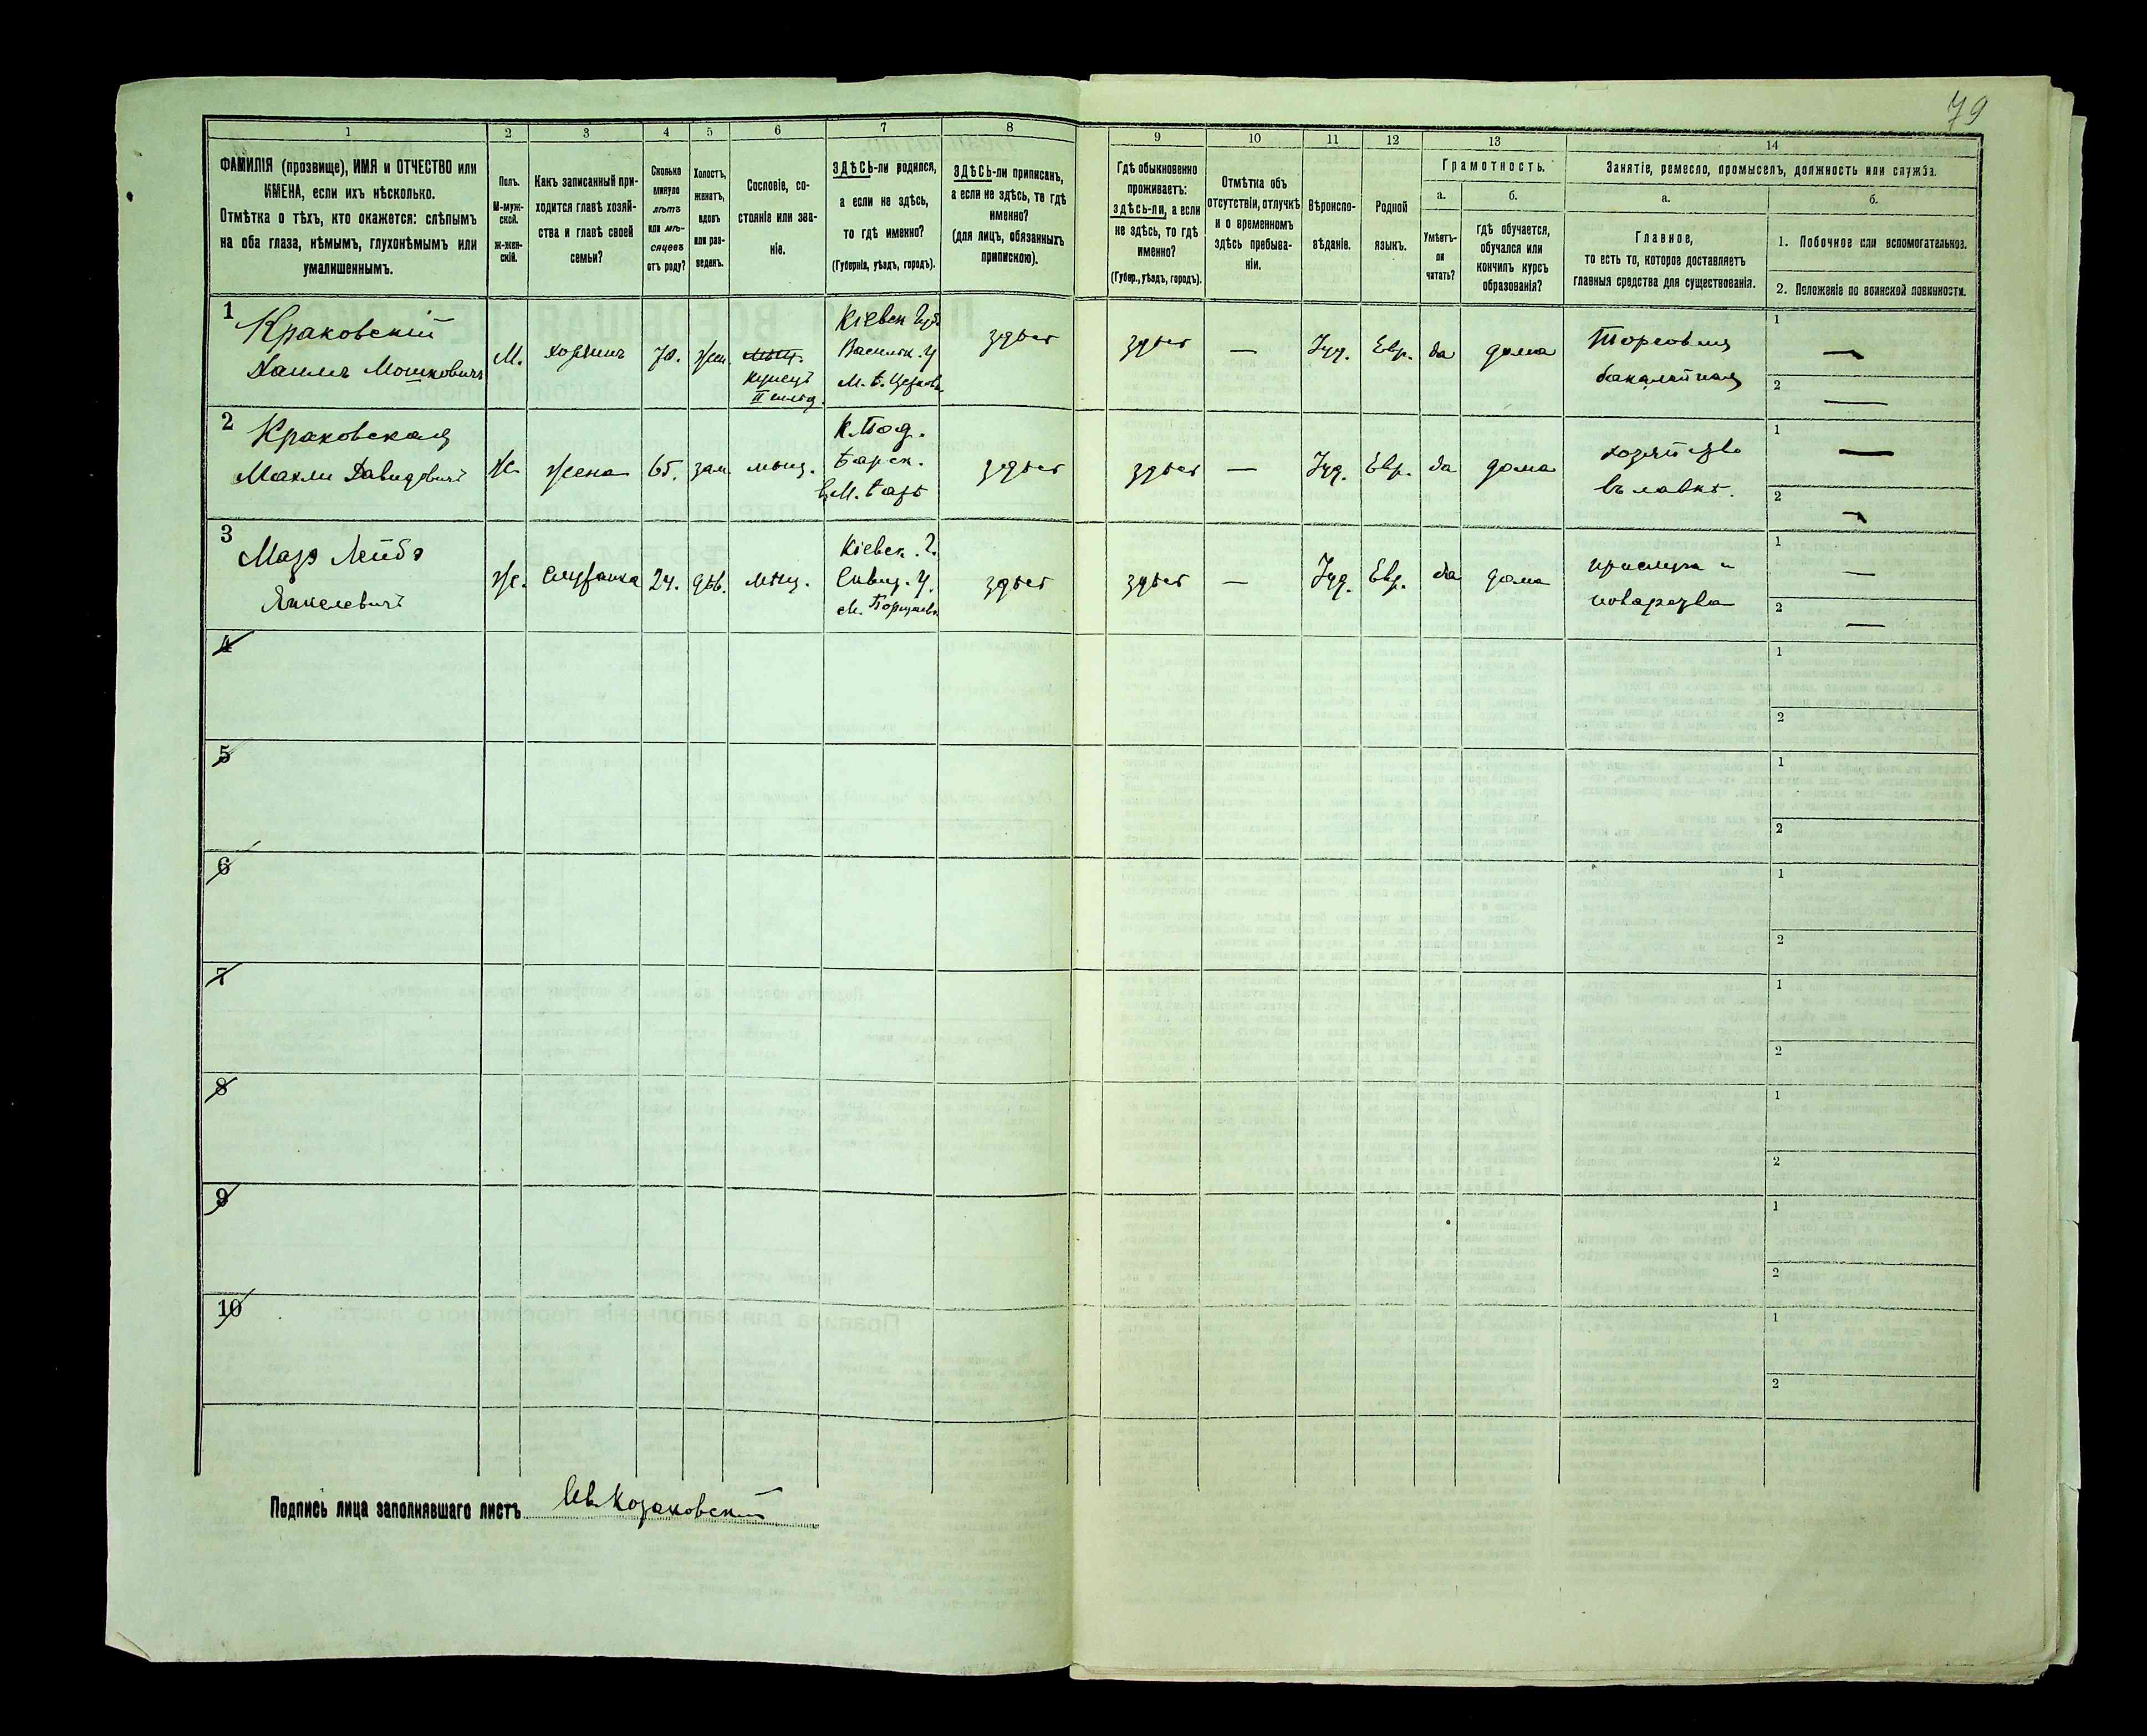 79
1 2 3 4 5 6 7 8 9 10 11 12 13 14
ФАМИЛІЯ (прозвище), ИМЯ и ОТЧЕСТВО или
ИМЕНА, если ихъ нѣсколько.
Отмѣтка о тѣхъ, кто окажется: слѣпымъ
на оба глаза, нѣмымъ, глухонѣмымъ или
умалишеннымъ.
Полъ.
М-муж-
ской.
ж-жен-
скій.
Какъ записанный при-
ходится главѣ хозяй-
ства и главѣ своей
семьи?
Сколько
минуло
лѣтъ
или мѣ-
сяцевъ
отъ роду?
Холостъ,
женатъ,
вдовъ
или раз-
веденъ.
Сословіе, со-
стояніе или зва-
ніе.
ЗДѢСЬ-ли родился,
а если не здѣсь,
то гдѣ именно?
(Губернія, уѣздъ, городъ).
ЗДѢСЬ-ли приписанъ,
а если не здѣсь, то гдѣ
именно?
(для лицъ, обязанныхъ
припискою).
Гдѣ обыкновенно
проживаетъ:
здѣсь-ли, а если
не здѣсь, то гдѣ
именно?
(Губер., уѣздъ, городъ).
Отмѣтка объ
отсутствіи, отлучкѣ
и о временномъ
здѣсь пребыва-
ніи.
Вѣроиспо-
вѣданіе.
Родной
языкъ.
Грамотность.
а.
Умѣетъ-
ли
читать?
б.
гдѣ обучается,
обучался или
кончилъ курсъ
образованія?
Занятіе, ремесло, промыселъ, должность или служба.
а.
Главное,
то есть то, которое доставляетъ
главныя средства для существованія.
б.
1. Побочное или вспомогательное.
2. Положеніе по воинской повинности.
1
Краковскій
Хаимъ Мошковичъ
М.
хозяинъ
70.
жен.
мѣщ.
купецъ
II гильд.
Кіевск губ
Васильк. у
М. Б. Церковь
здѣсь
здѣсь
—
Іуд.
Евр.
да
дома
Торговля
бакалейная
1 —
2 —
2
Краковская
Махли Давидович
Ж
жена
65.
зам.
мѣщ.
К. Под.
Барск.
М. Баръ
здѣсь
здѣсь
—
Іуд.
Евр.
да
дома
хозяйство
въ лавкѣ.
1 —
2 —
3
Мазь Лейба
Янкелевич
Ж.
служанка
24.
дѣв.
мѣщ.
Кіевск. г.
Сквир. у.
М.
здѣсь
здѣсь
—
Іуд.
Евр.
да
дома
прислуга и
1 —
2 —
4
1
2
5
1
2
6
1
2
7
1
2
8
1
2
9
1
2
10
1
2
Подпись лица заполнявшаго листъ